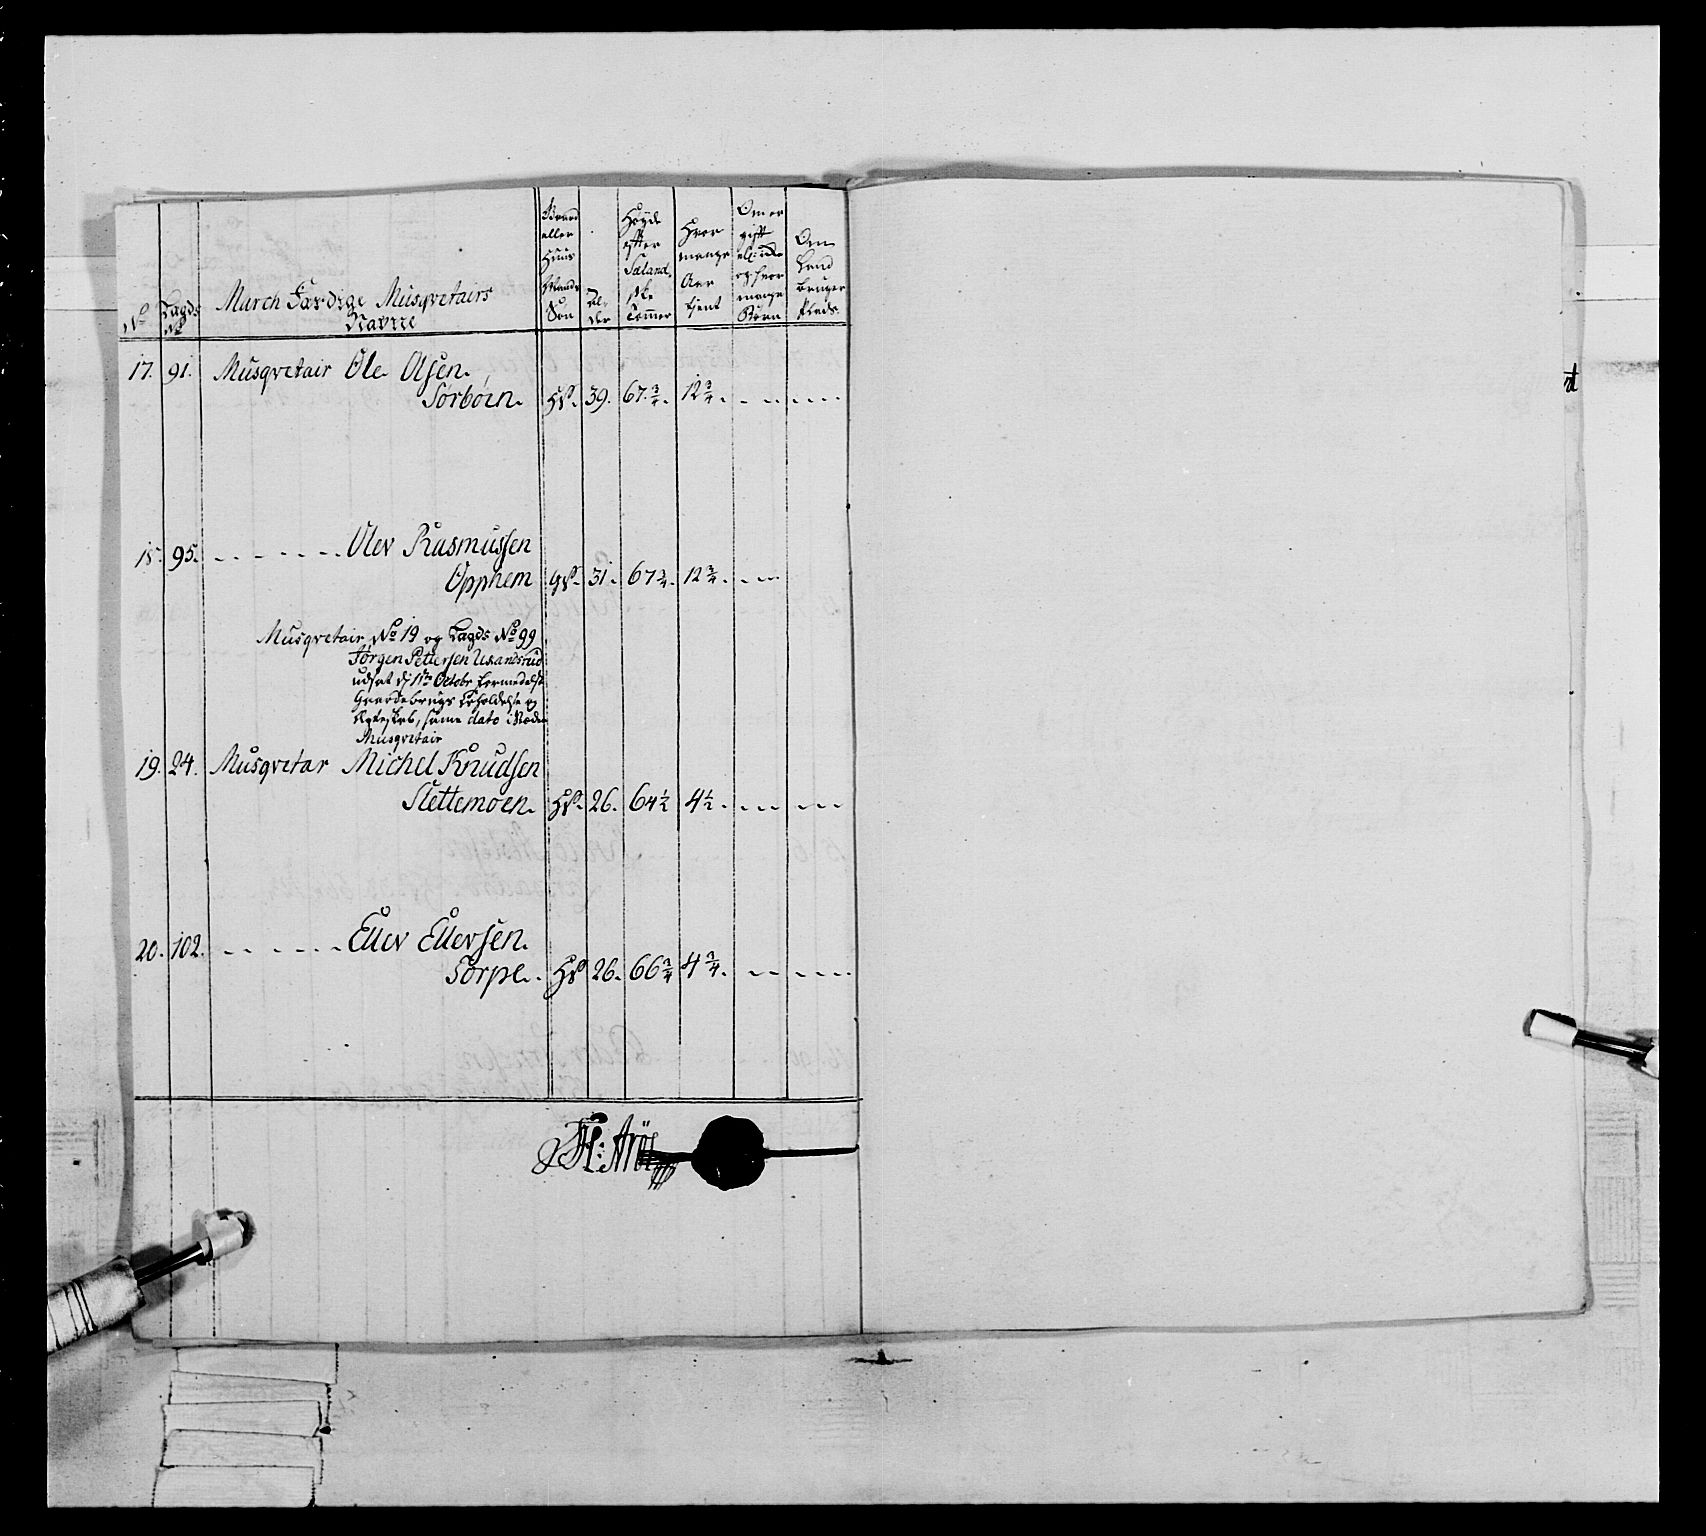 No
Lægds No
March Færdige Musqvetairs
Navne
Gaard
eller
Huus
Mands
Søn
Al-
der
Høyde
efter
Sæland-
ske
Tommer
Hvor
mange
Aar
tient
Om er
gift
ell: ikke
og hvor
mange
Børn
Om
Land
bruger
Plads.
17. 91. Musqvetair Ole Olsen.
Sørbøen. HS. 39. 67 3/4. 12 3/4. - - - - - - -
18. 95. - - - - - - Olev Rasmussen
Opphem GS. 31. 67 3/4. 12 3/4. - - -
Musqvetair No 19 og Lægds No 99
Jørgen Pettersen
udsat d: 11te Octobr formedelst
Gaardebrugs
same dato
Musqvetair
19. 24. Musqvetar Michel Knudsen
Slettemoen. HS. 26. 64 1/2 4 1/2. - - - - - -
20. 102. - - - - - Ellev Ellevsen.
Sorpe. HS 26. 66 3/4 4 3/4. - - - - - - -
H: Arö